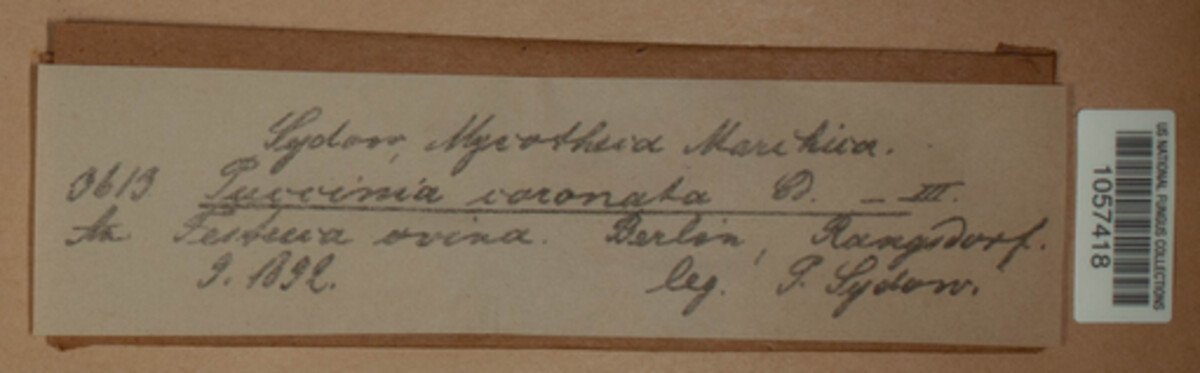 Sydow, Mycotheca Marchica.
3613 Puccinia coronata Cd. – III.
An Festuca ovina. Berlin, Rangsdorf.
9. 1892. leg. P. Sydow.
US NATIONAL FUNGUS COLLECTIONS
1057418